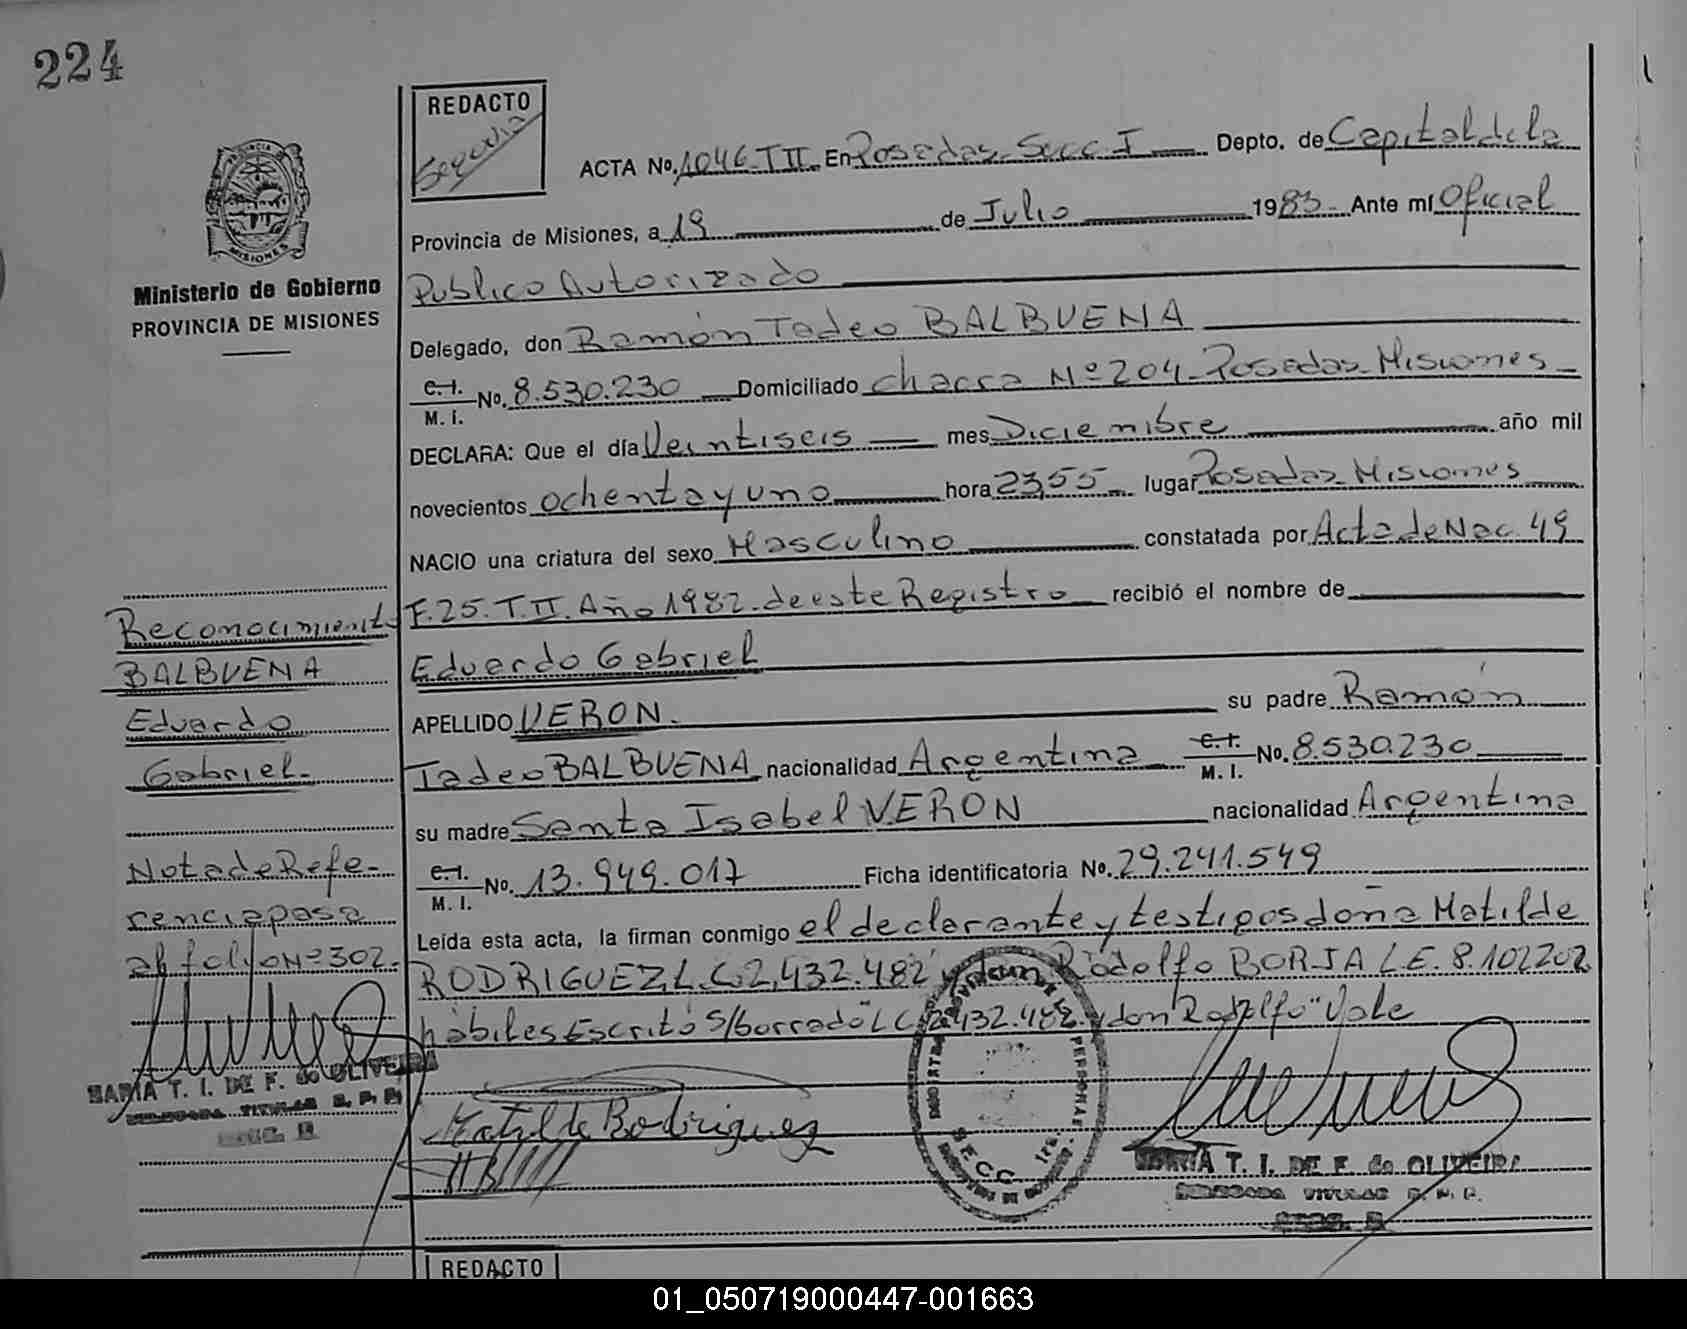 224
REDACTO
Segovia
ACTA No. 1046-T II En Posadas Secc I Depto. de Capital de la
Provincia de Misiones, a 19 de Julio 1983 Ante mí Oficial
Publico Autorizado
Ministerio de Gobierno
PROVINCIA DE MISIONES
Delegado, don Ramón Tadeo BALBUENA
C. I.
M. I. No. 8.530.230 Domiciliado chacra Nº 204 - Posadas - Misiones -
DECLARA: Que el día Veintiseis mes Diciembre año mil
novecientos ochenta y uno hora 23,55 lugar Posadas - Misiones
NACIO una criatura del sexo Masculino constatada por Acta de Nac. 49
F. 25. T. II. Año 1982 - de este Registro recibió el nombre de
Eduardo Gabriel
APELLIDO VERON. su padre Ramón
Tadeo BALBUENA nacionalidad Argentina C. I.
M. I. No. 8.530.230
su madre Santa Isabel VERON nacionalidad Argentina
C. I.
M. I. No. 13.949.017 Ficha identificatoria No. 29.241.549
Leída esta acta, la firman conmigo el declarante y testigos doña Matilde
RODRIGUEZ, L.C. 2.432.482 y don Rodolfo BORJA L.E. 8.102202
hábiles Escrito s/borrado "L C. 2.432.482 y don Rodolfo" Vale
Reconocimiento
BALBUENA
Eduardo
Gabriel.
Nota de Refe-
rencia pasa
al folio Nº 302.
MARIA T. I. DE F. de OLIVEIRA
DELEGADA TITULAR R. P. P.
SECC. I
Matilde Rodriguez
SECC. 1ra.
MARIA T. I. DE F. de OLIVEIRA
DELEGADA TITULAR R. P. P.
SECC. I
REDACTO
01_050719000447-001663